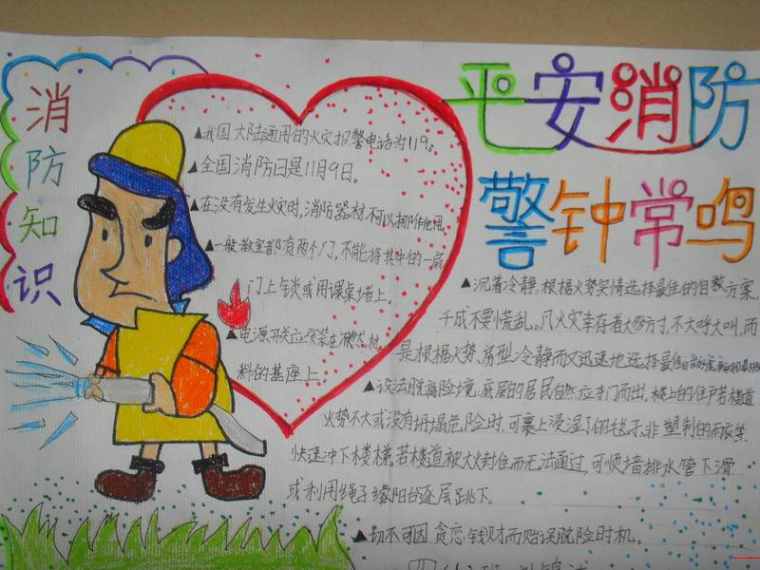 消防知识
▲我国大陆通用的火灾报警电话为119。
▲全国消防日是11月9日。
▲在没有发生火灾时,消防器材不可以挪作他用
▲一般教室都须两个门,不能将其中的一扇
门上锁或用课桌堵上。
▲电源开关应安装在
料的基座上
平安消防
警钟常鸣
▲沉着冷静,根据火势实情选择最佳的自救方案,
千成不要慌乱。凡火灾幸存者大多方寸,不大呼大叫,而
是根据火势、房型冷静而又迅速地选择最佳自救方案
▲设法脱离险境,底层的居民自然应夺门而出。楼上的住户若楼道
火势不大或没有坍塌危险时,可裹上浸湿了的毯子、非塑制的雨衣等,
快速冲下楼梯,若楼道被大火封住而无法通过,可顺墙排水管下滑
或利用绳子缘阳台逐层跳下。
▲切不可因贪恋钱财而贻误脱险时机。